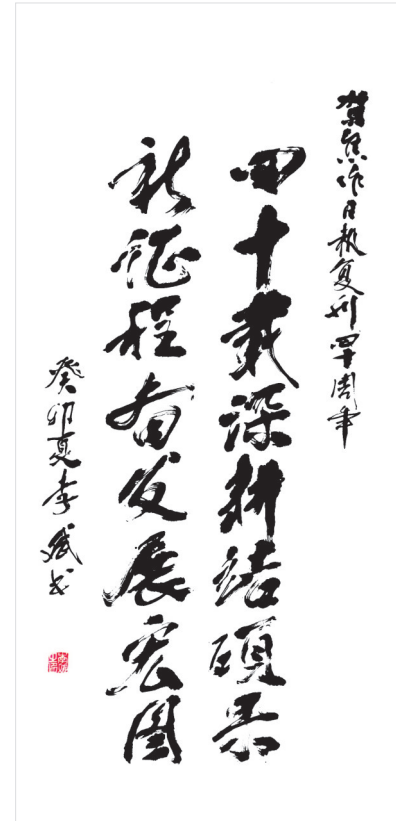 贺焦作日报复刊四十周年
四十载深耕结硕果
新征程奋发展宏图
癸卯夏 李斌书